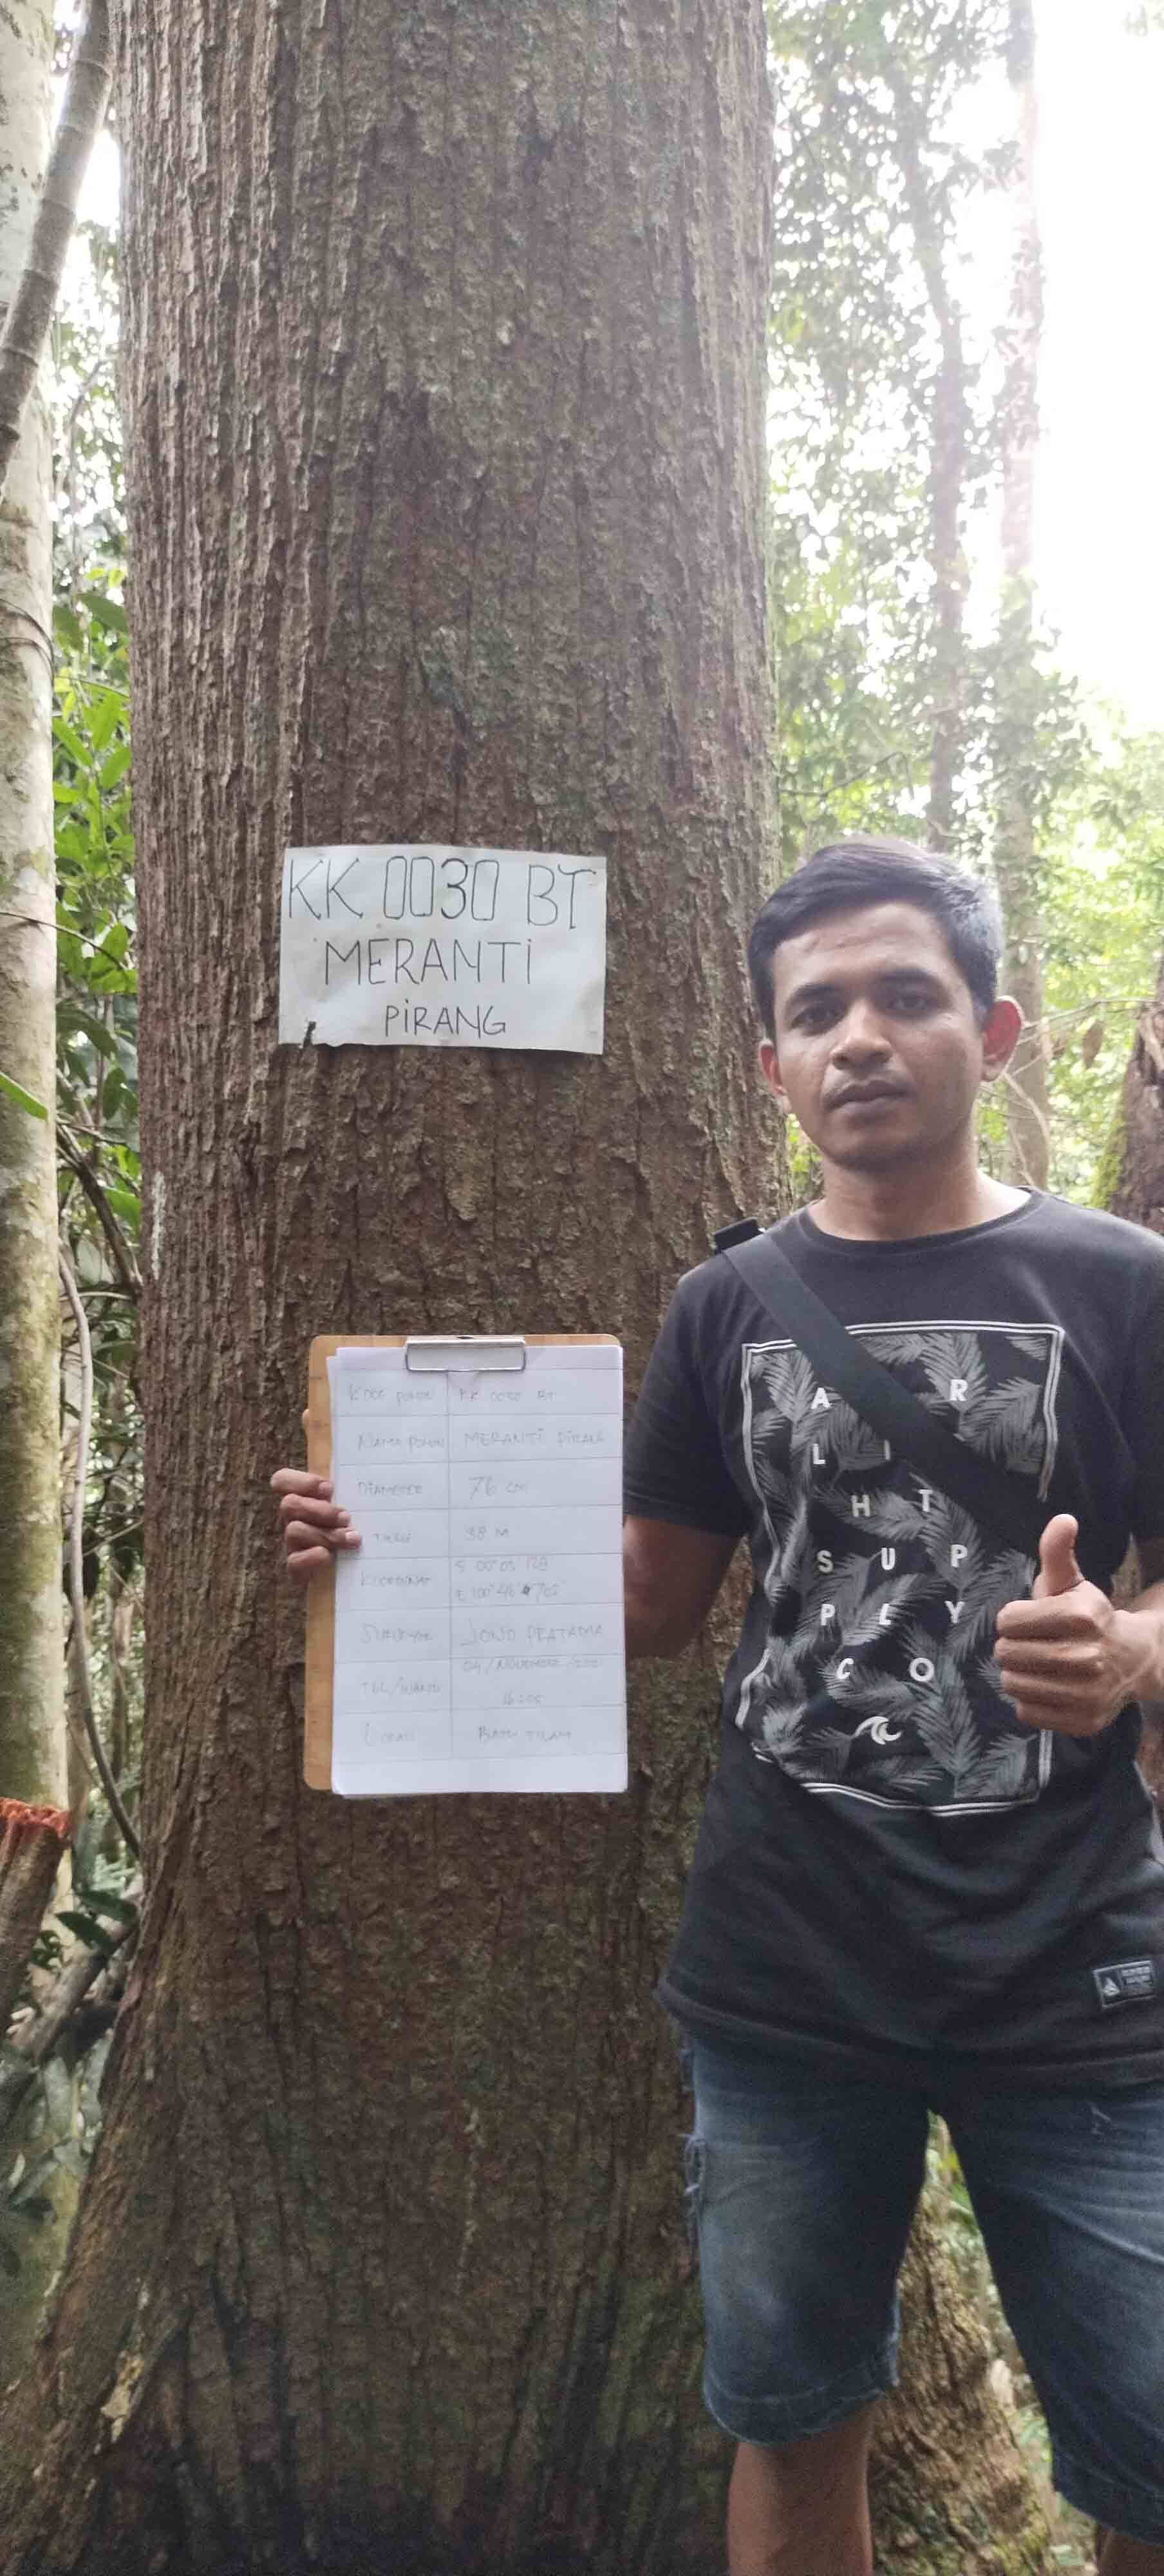 KK 0030 BT
MERANTI
PIRANG
KODE POHON KK 0030 BT
NAMA POHON MERANTI PIRANG
DIAMETER 76 CM
TINGGI 38 M
KOORDINAT S 00°05'
E 100°
SURVEYOR JONO PRATAMA
04/NOVEMBER/
TGL/WAKTU
LOKASI BATU
A R
L I
H T
S U P
P L Y
C O